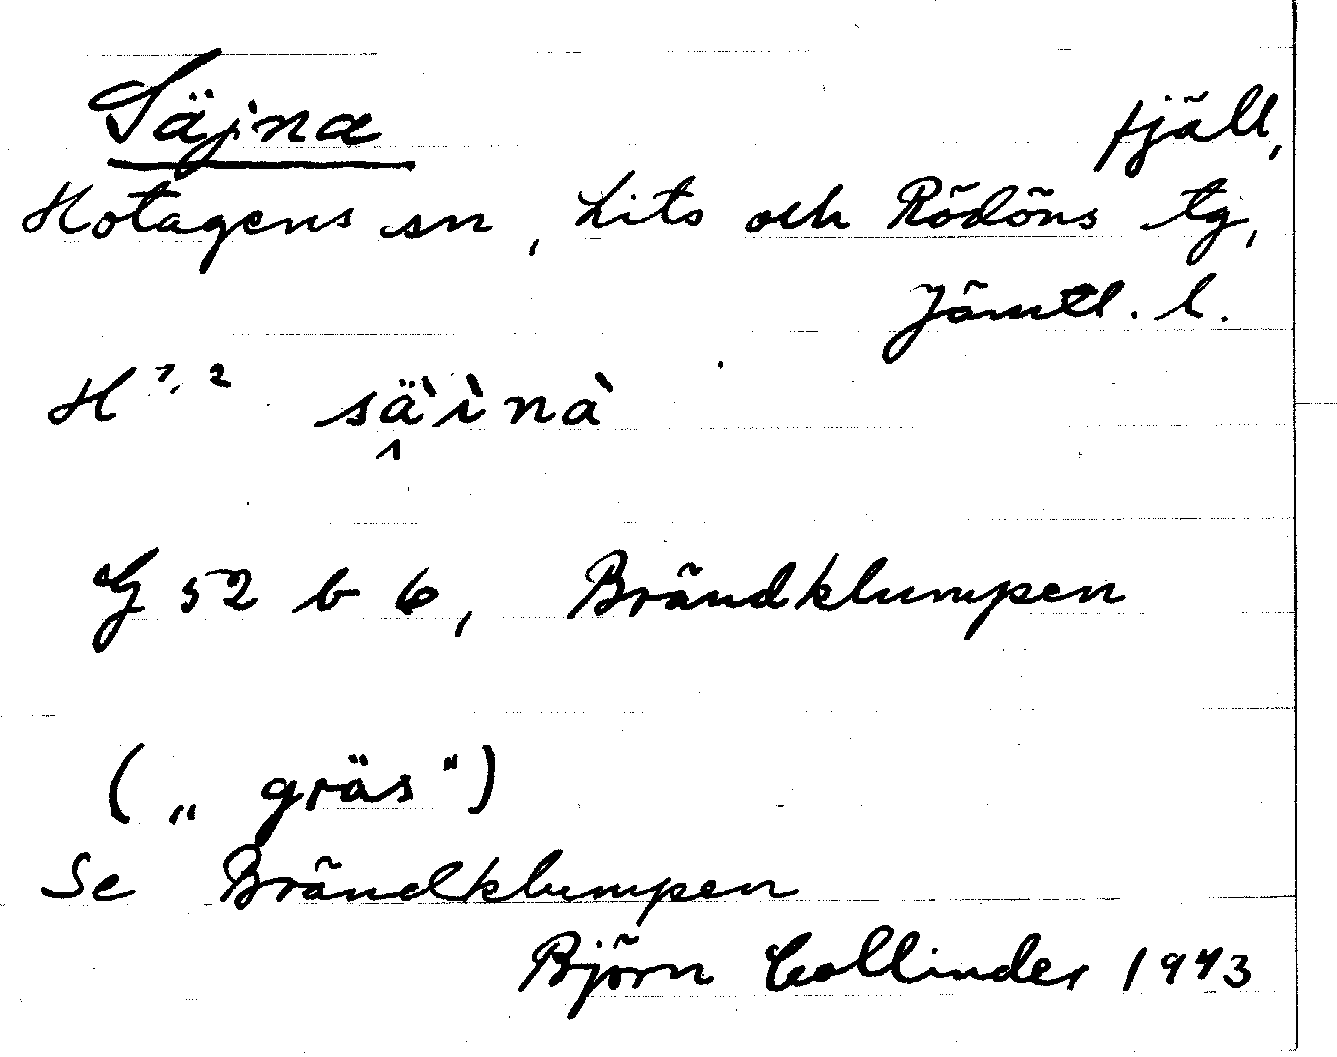 Säjna
fjäll,
Hotagens sn, Lits och Rödöns tg,
Jämtl. l.
H 1, 2 sä̀ìnà
G 52 b 6, Brändklumpen
(„ gräs")
Se Brändklumpen
Björn Collinder 1943